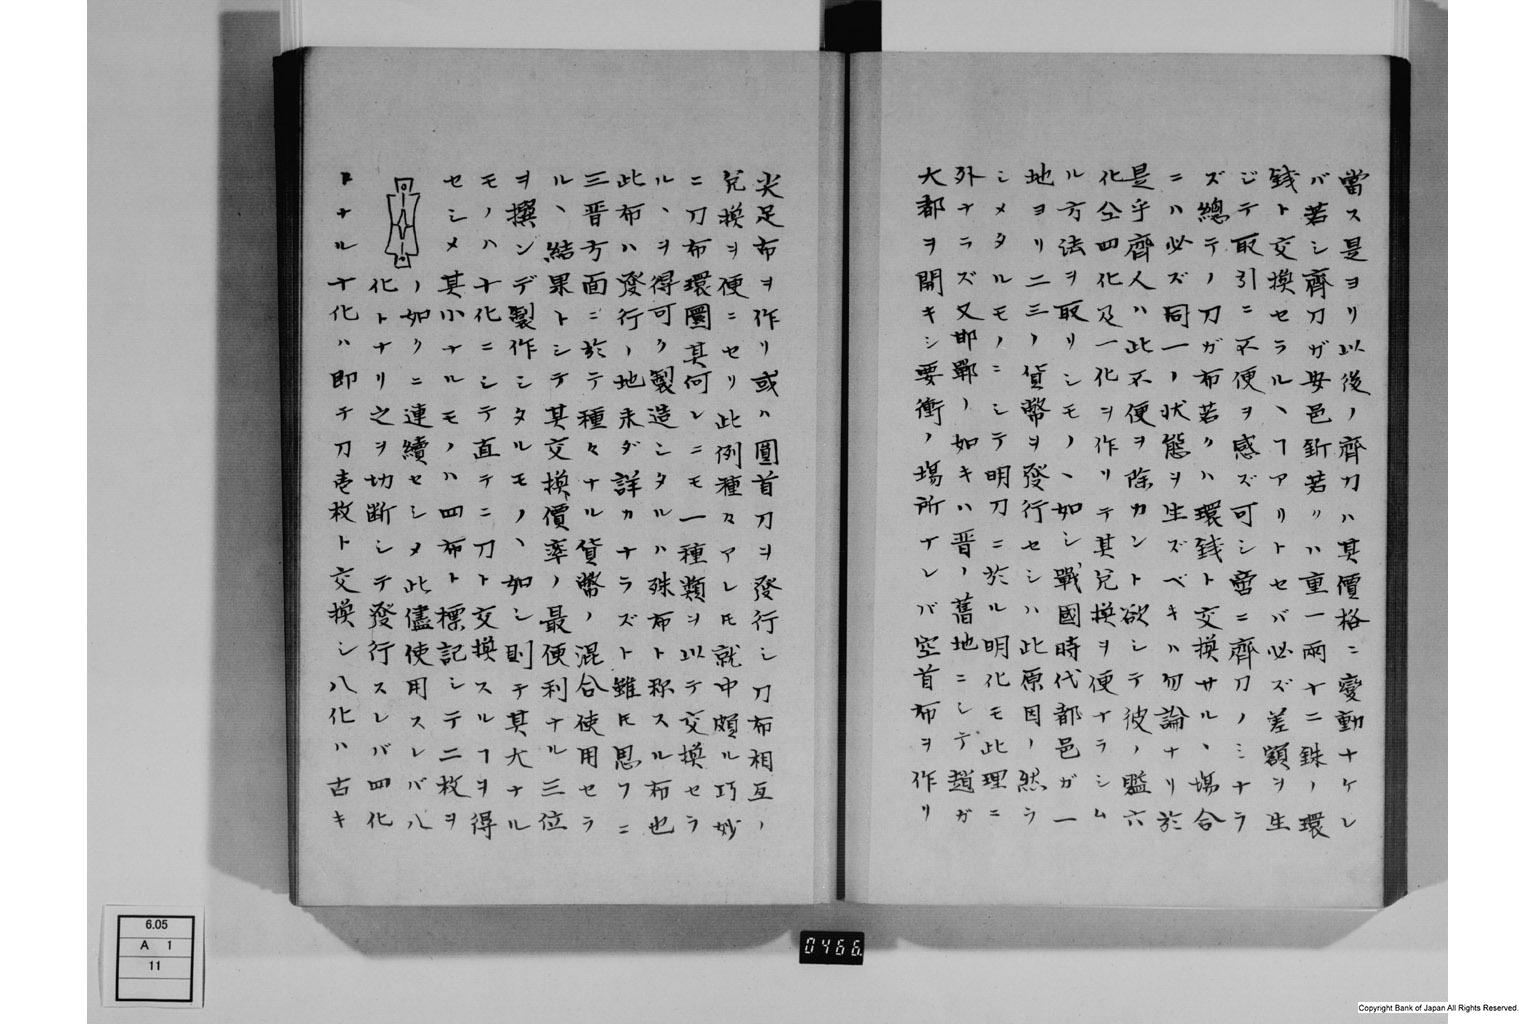 當ス是ヨリ以後ノ齊刀ハ其價格ニ變動ナケレ
バ若シ齊刀ガ安邑釿若クハ重一兩十二銖ノ環
錢ト交換セラルヽヿアリトセバ必ズ差額ヲ生
ジテ取引ニ不便ヲ感ズ可シ啻ニ齊刀ノミナラ
ズ總テノ刀ガ布若クハ環錢ト交換サルヽ場合
ニハ必ズ同一ノ状態ヲ生ズベキハ勿論ナリ於
是乎齊人ハ此不便ヲ除カント欲シテ彼ノ六
化仝四化及一化ヲ作リテ其兌換ヲ便ナラシム
ル方法ヲ取リシモノヽ如シ戰國時代都邑ガ一
地ヨリ二三ノ貨幣ヲ發行セシハ此原因ノ然ラ
シメタルモノニシテ明刀ニ於ル明化モ此理ニ
外ナラズ又邯鄲ノ如キハ晋ノ舊地ニシテ趙ガ
大都ヲ開キシ要衝ノ場所ナレバ空首布ヲ作リ
尖足布ヲ作リ或ハ圓首刀ヲ發行シ刀布相互ノ
兌換ヲ便ニセリ此例種々アレ𪜈就中頗ル巧妙
ニ刀布環圜其何レニモ一種類ヲ以テ交換セラ
ルヽヲ得可ク製造シタルハ殊布ト称スル布也
此布ハ發行ノ地未ダ詳カナラズト雖𪜈思フニ
三晋方面ニ於テ種々ナル貨幣ノ混合使用セラ
ルヽ結果トシテ其交換價率ノ最便利ナル三位
ヲ撰ンデ製作シタルモノヽ如シ則テ其大ナル
モノハ十化ニシテ直テニ刀ト交換スルヿヲ得
セシメ其小ナルモノハ四布ト標記シテ二枚ヲ
ノ如クニ連續セシメ此儘使用スレバ八
化トナリ之ヲ切断シテ發行スレバ四化
トナル十化ハ即チ刀壱枚ト交換シ八化ハ古キ
6.05
A 1
11
0466
Copyright Bank of Japan All Rights Reserved.